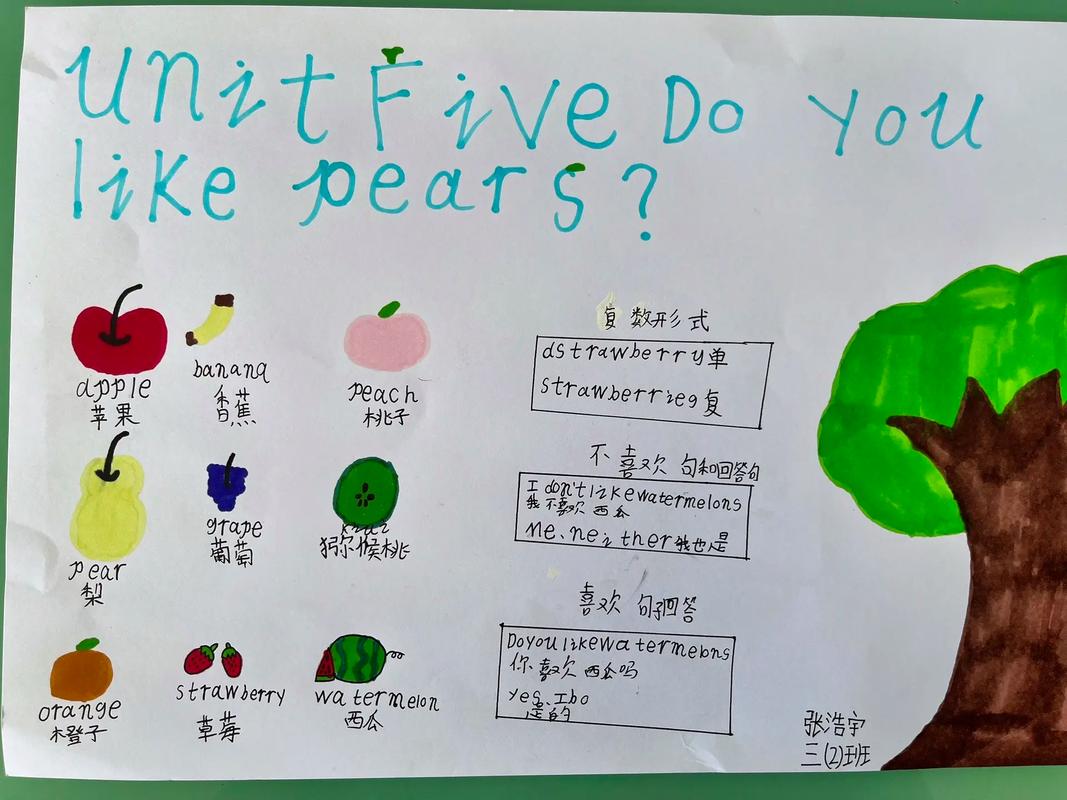 Unit Five Do You
like pears?
apple
苹果
banana
香蕉
peach
桃子
pear
梨
grape
葡萄
猕候桃
orange
橙子
strawberry
草莓
watermelon
西瓜
复数形式
dstrawberry单
strawberries复
不喜欢 句和回答句
I don't like watermelons
我不喜欢 西瓜
Me、neither我也是
喜欢 句子回答
Do you like watermelons
你喜欢 西瓜吗
yes、I bo
是的
张浩宇
三(2)班